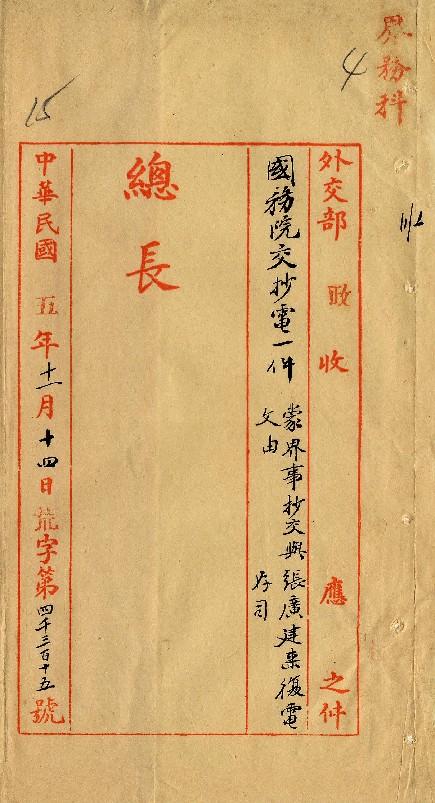 界務科
4
15
外交部 政 收 應 之件
國務院交抄電一件
蒙界事抄交與張廣建來復電
文由
存司
總長
中華民國五年十一月十四日 字第四千三百十五號